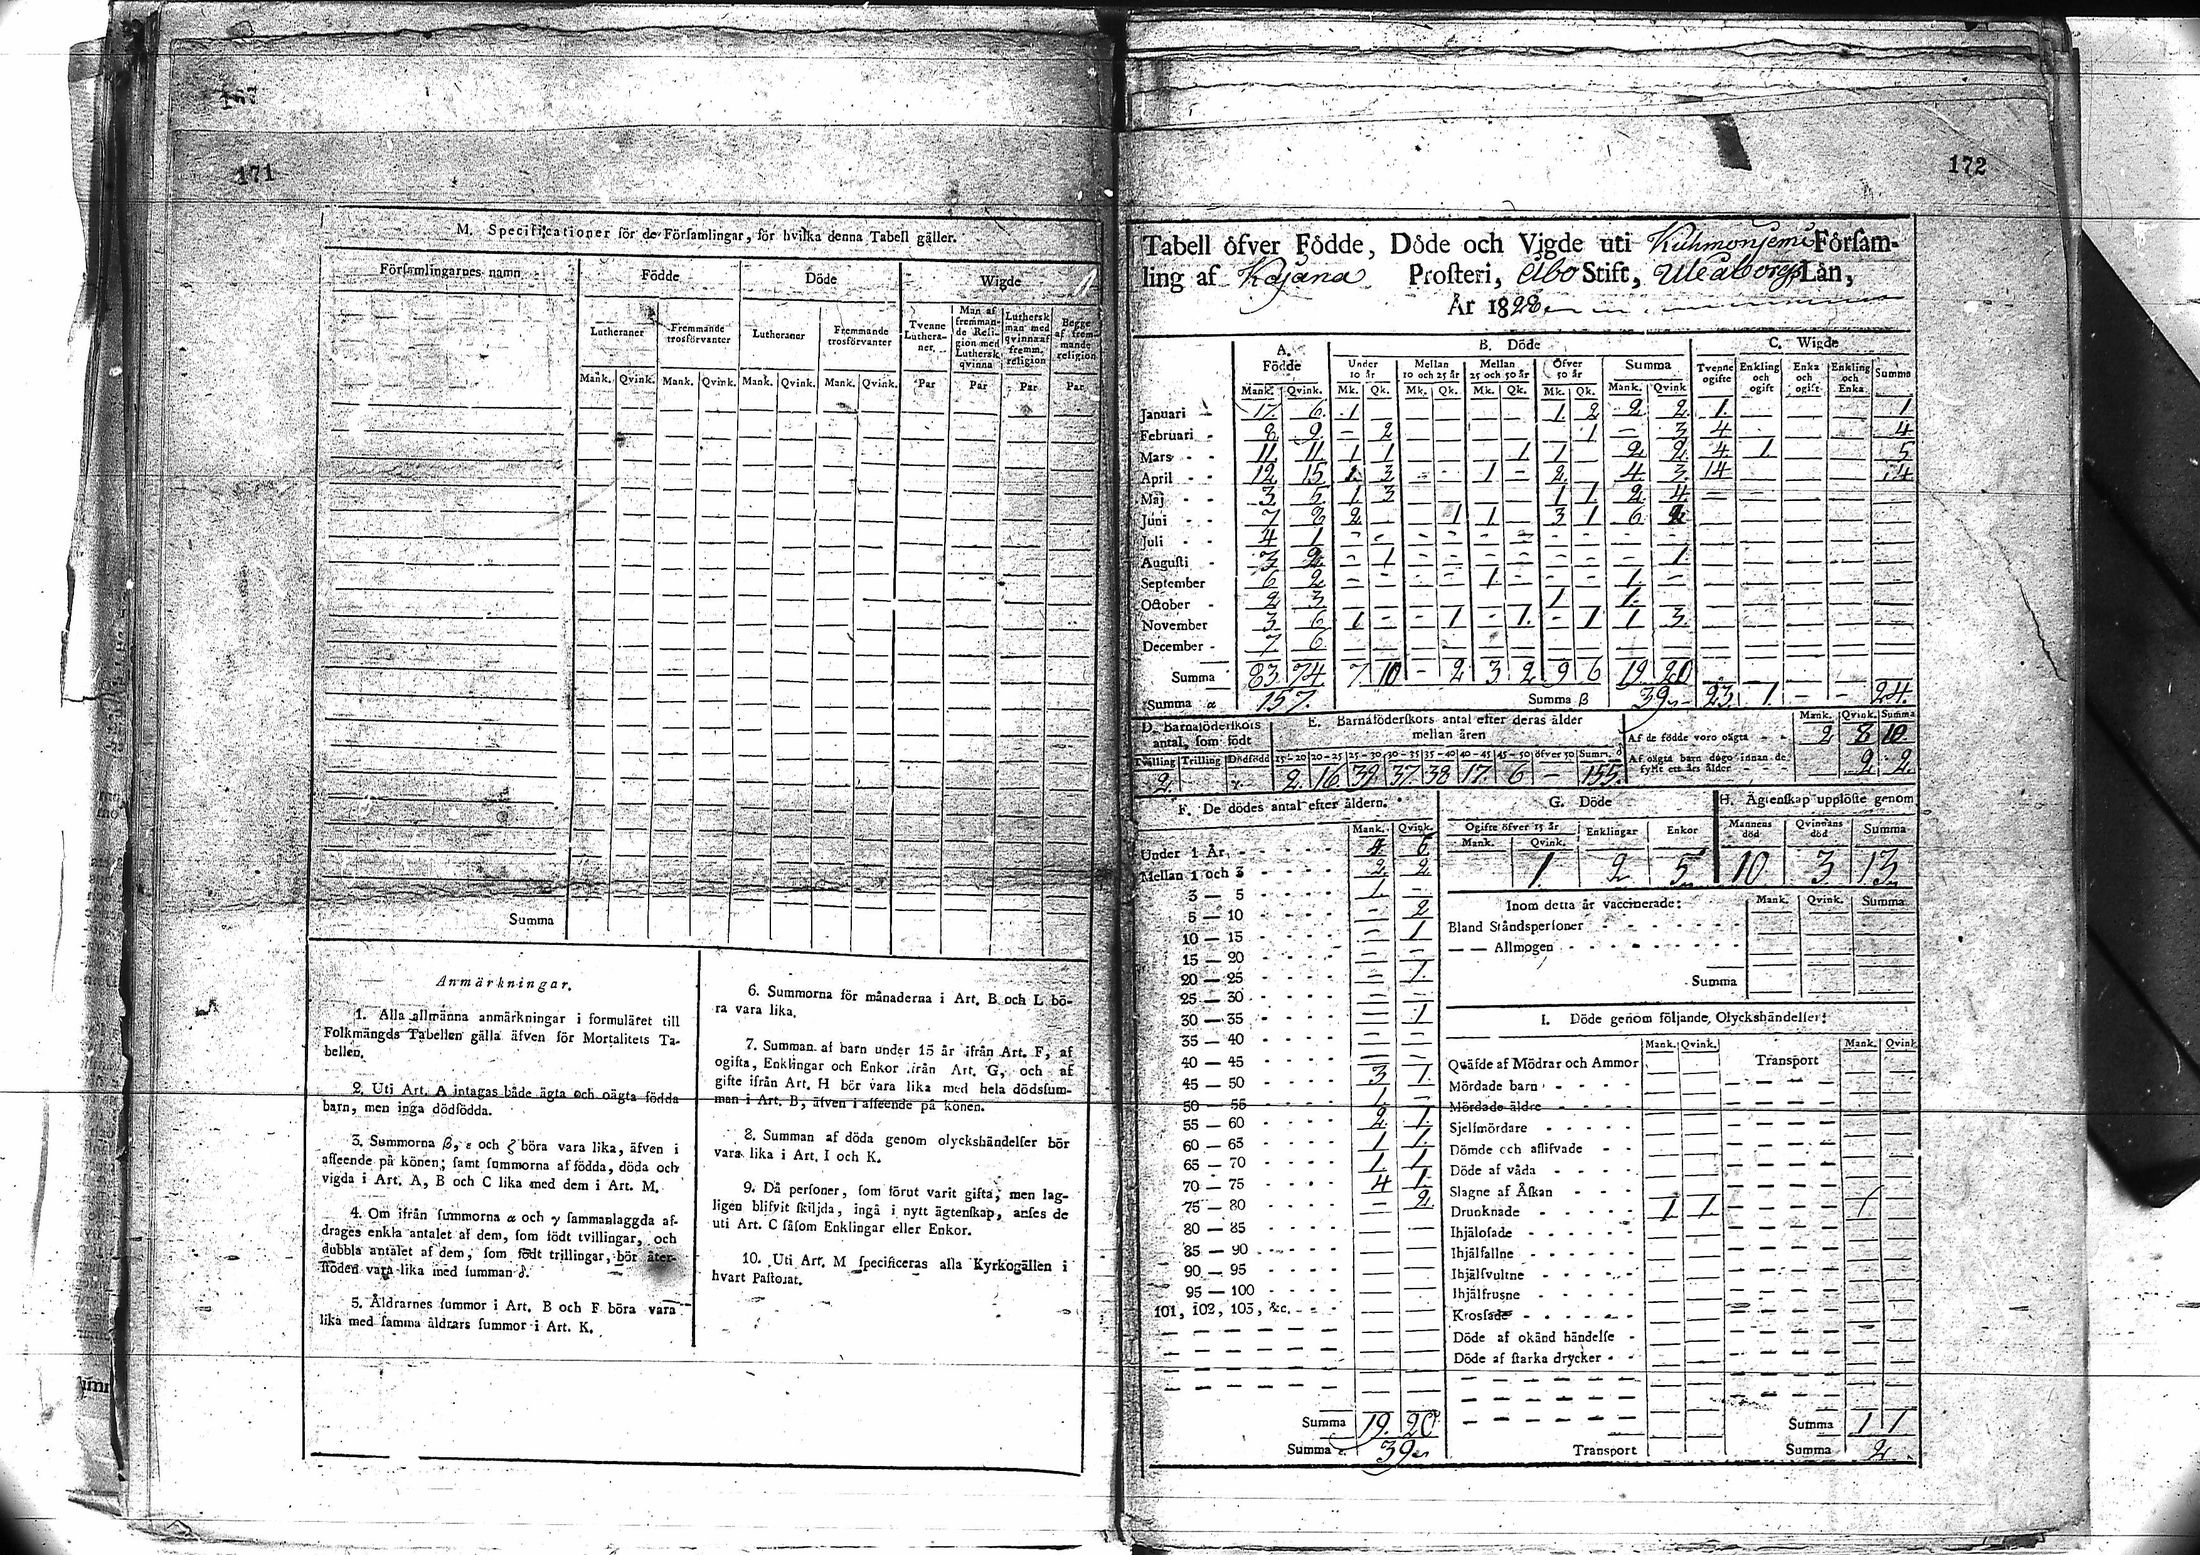 167
171
M. Specificationer för de Församlingar, för hvilka denna Tabell gäller.
Församlingarnes namn
Födde
Döde
Wigde
Lutheraner
Fremmande trosförvanter
Lutheraner
Fremmande trosförvanter
Tvenne Lutheraner.
Man af fremmande Religion med Luthersk qvinna
Luthersk man med qvinna af fremm. religion
Begge af fremmande religion
Mank. Qvink. Mank. Qvink. Mank. Qvink. Mank. Qvink. Par Par Par Par
Summa
Anmärkningar.
1. Alla allmänna anmärkningar i formuläret till
Folkmängds Tabellen gälla äfven för Mortalitets Ta-
bellen.
2. Uti Art. A intagas både ägta och oägta födda
barn, men inga dödfödda.
3. Summorna β, ε och ζ böra vara lika, äfven i
afseende på könen; samt summorna af födda, döda och
vigda i Art. A, B och C lika med dem i Art. M.
4. Om ifrån summorna α och γ sammanlaggda af-
drages enkla antalet af dem, som födt tvillingar, och
dubbla antalet af dem, som födt trillingar, bör åter-
stoden vara lika med summan δ.
5. Åldrarnes summor i Art. B och F böra vara
lika med samma åldrars summor i Art. K.
6. Summorna för månaderna i Art. B och L bö-
ra vara lika.
7. Summan af barn under 15 år ifrån Art. F, af
ogifta, Enklingar och Enkor ifrån Art. G, och af
gifte ifrån Art. H bör vara lika med hela dödssum-
man i Art. B, äfven i afseende på könen.
8. Summan af döda genom olyckshändelser bör
vara lika i Art. I och K.
9. Då personer, som förut varit gifta, men lag-
ligen blifvit skiljda, ingå i nytt ägtenskap, anses de
uti Art. C såsom Enklingar eller Enkor.
10. Uti Art. M specificeras alla Kyrkogällen i
hvart Pastorat.
172
Tabell öfver Födde, Döde och Vigde uti Kuhmoniemi Försams-
ling af Kajana Prosteri, Åbo Stift, Uleåborgs Län,
År 1828
A. Födde
B. Döde
C. Wigde
Under 10 år
Mellan 10 och 25 år
Mellan 25 och 50 år
Öfver 50 år
Summa
Tvenne ogifte
Enkling och ogift
Enka och ogift
Enkling och Enka
Summa
Mank. Qvink. Mk. Qk. Mk. Qk. Mk. Qk. Mk. Qk. Mank. Qvink.
Januari 17 6 1 1 2 2 2 1 1
Februari 8 9 – 2 1 – 3 4 4
Mars 11 11 1 1 1 1 2 2 4 1 5
April 12 15 2 3 – – 1 – 2 4 3 14 14
Maj 3 5 1 3 1 1 2 4
Juni 7 8 2 1 1 3 1 6 2
Juli 4 1
Augusti 3 2 – 1 1
September 6 2 1 1 –
October 2 3 1 1
November 3 6 1 – – 1 – 1 – 1 1 3
December 7 6
Summa 83 74 7 10 – 2 3 2 9 6 19 20
Summa α 157. Summa β 39 23 1 – – 24.
D. Barnaföderskors antal, som födt
E. Barnaföderskors antal efter deras ålder mellan åren
Mank. Qvink. Summa
Tvilling Trilling Dödfödd 15–20 20–25 25–30 30–35 35–40 40–45 45–50 öfver 50 Summ. δ
2 2 16 39 37 38 17 6 – 155
Af de födde voro oägta 2 8 10
Af oägta barn dogo innan de fyllt ett års ålder 2 2
F. De dödes antal efter åldern.
Mank. Qvink.
Under 1 År 4 6
Mellan 1 och 3 2 2
3 — 5 1 –
5 — 10 – 2
10 — 15 – 1
15 — 20
20 — 25 – 1
25 — 30
30 — 35 – 1
35 — 40
40 — 45
45 — 50 3 1
50 — 55 1 –
55 — 60 2 1
60 — 65 1 1
65 — 70 1 1
70 — 75 4 1
75 — 80 – 2
80 — 85
85 — 90
90 — 95
95 — 100
101, 102, 103, &c.
Summa 19. 20
Summa ε. 39
G. Döde
Ogifte öfver 15 år
Enklingar
Enkor
Mank. Qvink.
1 2 5
H. Ägtenskap upplöste genom
Mannens död
Qvinnans död
Summa
10 3 13
Inom detta år vaccinerade: Mank. Qvink. Summa
Bland Ståndspersoner
— — Allmogen
Summa
I. Döde genom följande Olyckshändelser:
Mank. Qvink. Mank. Qvink
Quäfde af Mödrar och Ammor Transport
Mördade barn
Mördade äldre
Sjelfmördare
Dömde och aflifvade
Döde af våda
Slagne af Åskan
Drunknade 1 1
Ihjälosade
Ihjälfallne
Ihjälsvultne
Ihjälfrusne
Krossade
Döde af okänd händelse
Döde af starka drycker
Summa 1 1
Transport Summa 2